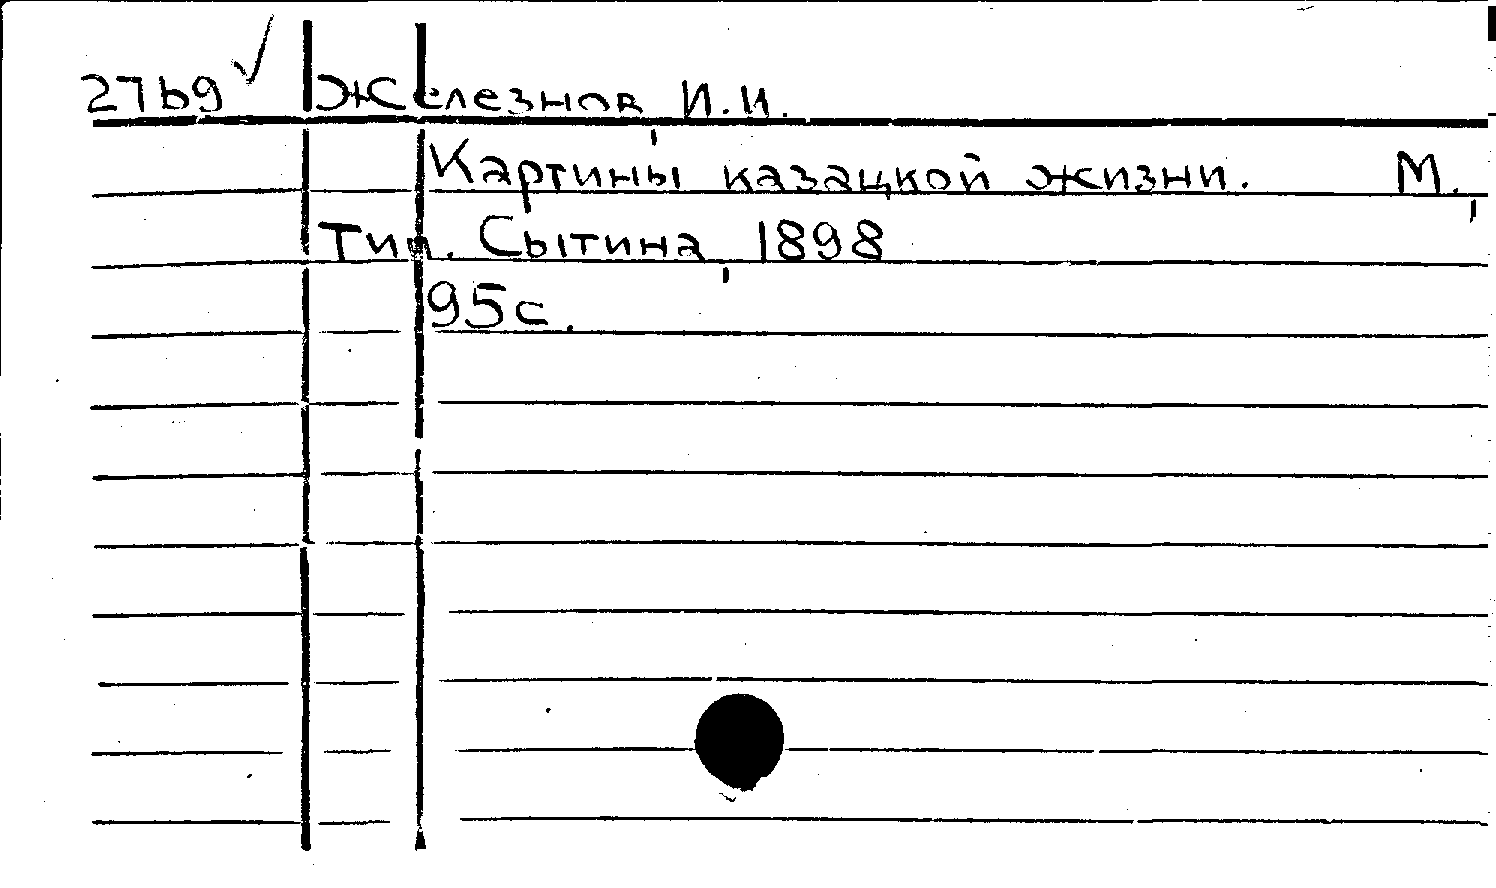 27b9 Железнов, И.И.
Картины казацкой жизни. М.,
Тип. Сытина, 1898
95с.